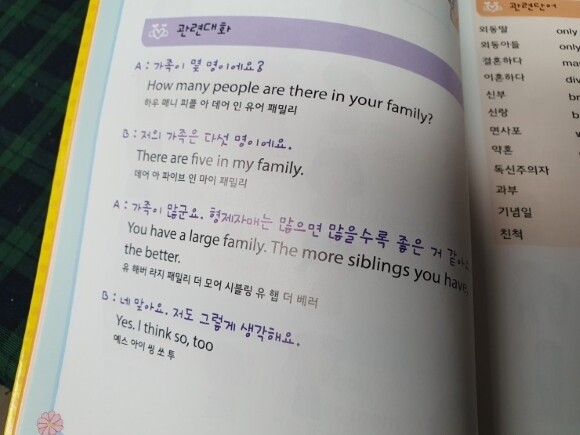 관련대화
A : 가족이 몇 명이에요?
How many people are there in your family?
하우 매니 피플 아 데어 인 유어 패밀리
B : 저의 가족은 다섯 명이에요.
There are five in my family.
데어 아 파이브 인 마이 패밀리
A : 가족이 많군요. 형제자매는 많으면 많을수록 좋은 거 같아
You have a large family. The more siblings you have,
the better.
유 해버 라지 패밀리 더 모어 시블링 유 햅 더 베러
B : 네 맞아요. 저도 그렇게 생각해요.
Yes. I think so, too
예스 아이 씽 쏘 투
관련단어
외동딸 only
외동아들 only
결혼하다
이혼하다
신부
신랑
면사포
약혼
독신주의자
과부
기념일
친척